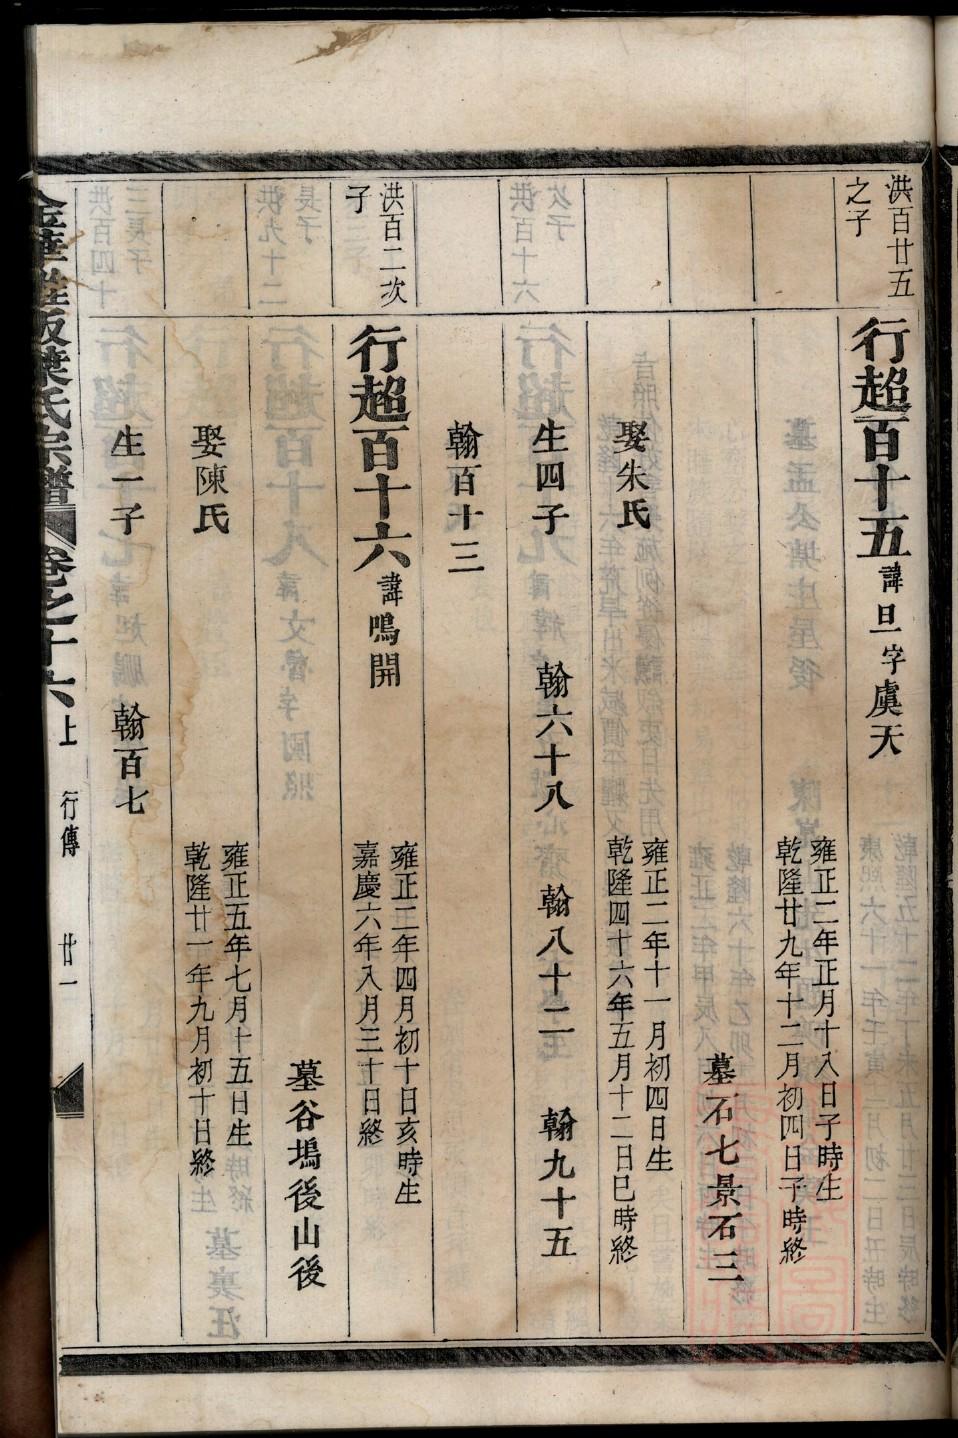 洪百廿五
之子
行超百十五 諱旦字虞天
雍正二年正月十八日子時生
乾隆廿九年十二月初四日子時終
墓石七景石三
娶朱氏
雍正二年十一月初四日生
乾隆四十六年五月十二日巳時終
生四子 翰六十八 翰八十二 翰九十五
翰百十三
洪百二次
子
行超百十六 諱鳴開
雍正二年四月初十日亥時生
嘉慶六年八月三十日終
墓谷塢後山後
娶陳氏
雍正五年七月十五日生
乾隆廿一年九月初十日終
生一子 翰百七
葉氏宗譜 卷之十六上 行傳 廿一